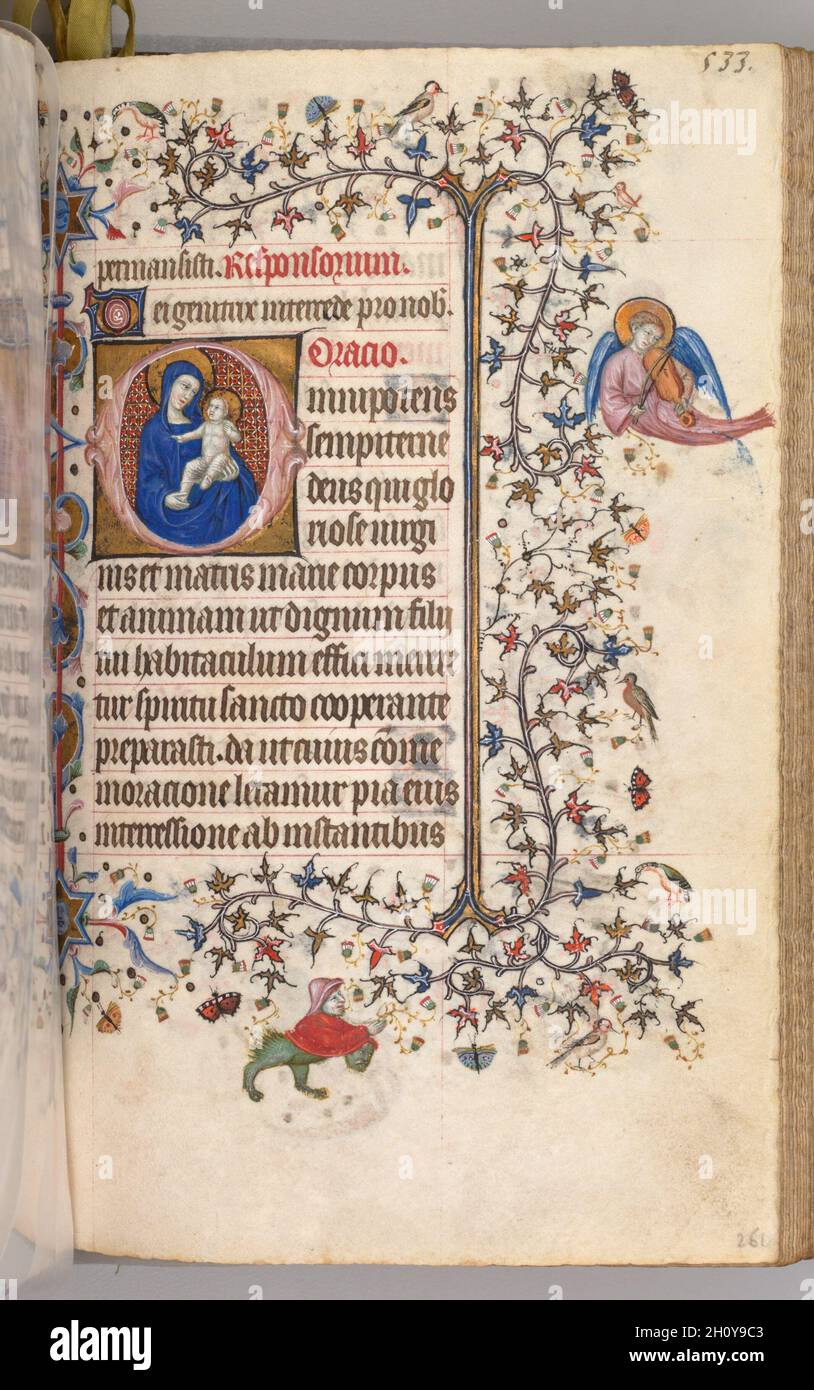 533.
permansisti. Responsorium.
Dei genitrix intercede pro nob.
Oracio.
Omnipotens
sempiterne
deus qui glo
riose uirgi
nis et matris marie corpus
et animam ut dignum filii
tui habitaculum effici merere
tur spiritu sancto cooperante
preparasti. da ut cuius come
moracione letamur pia eius
intercessione ab instantibus
261
alamy
alamy
Image ID: 2H0Y9C3
www.alamy.com